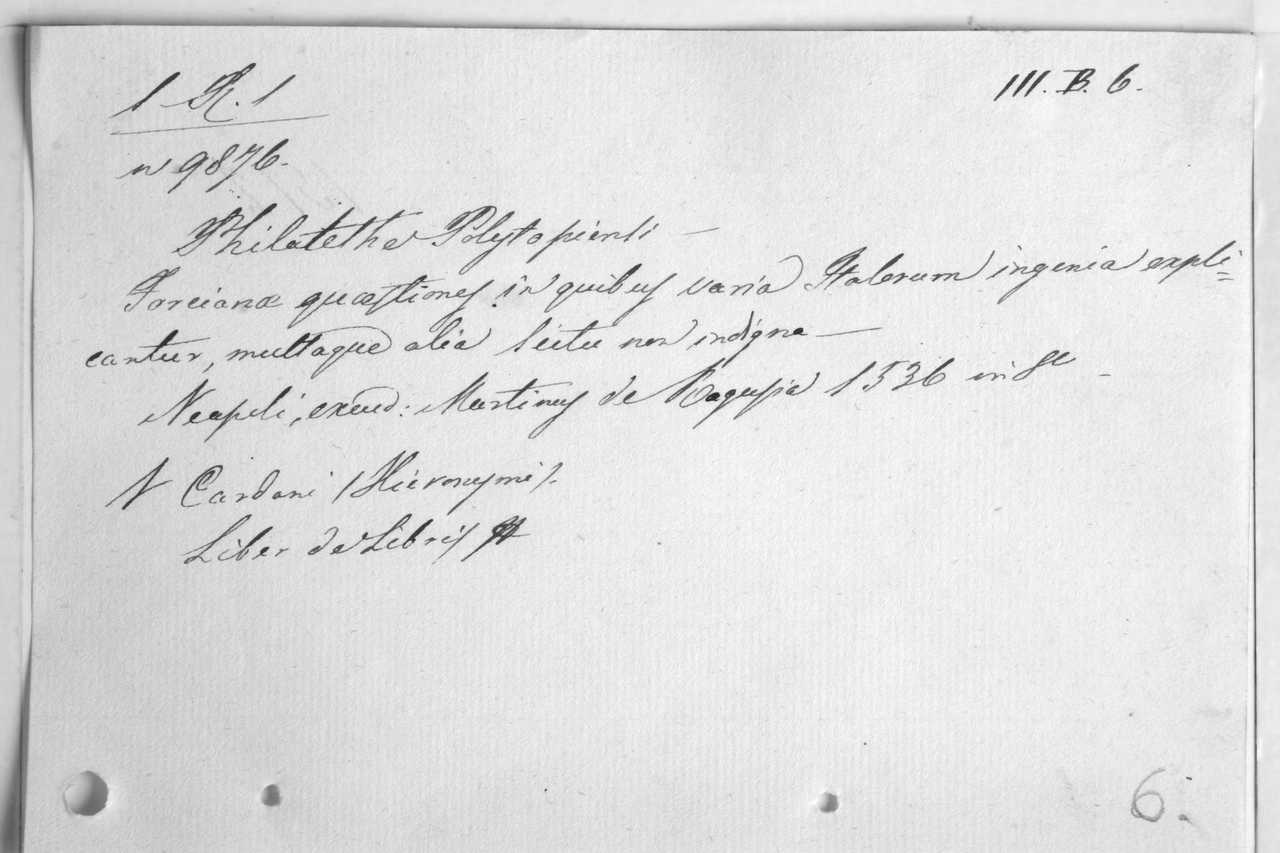 1 R. 1
III. B. 6.
n 9876.
Philalethes Polytopiensi —
Forcianæ quæstiones in quibus varia Italorum ingenia expli=
cantur, multaque alia scitu non indigna —
Neapoli, excud: Martinus de Ragusia 1536 in 8º —
V Cardani (Hieronymi).
Liber de Libris
6.